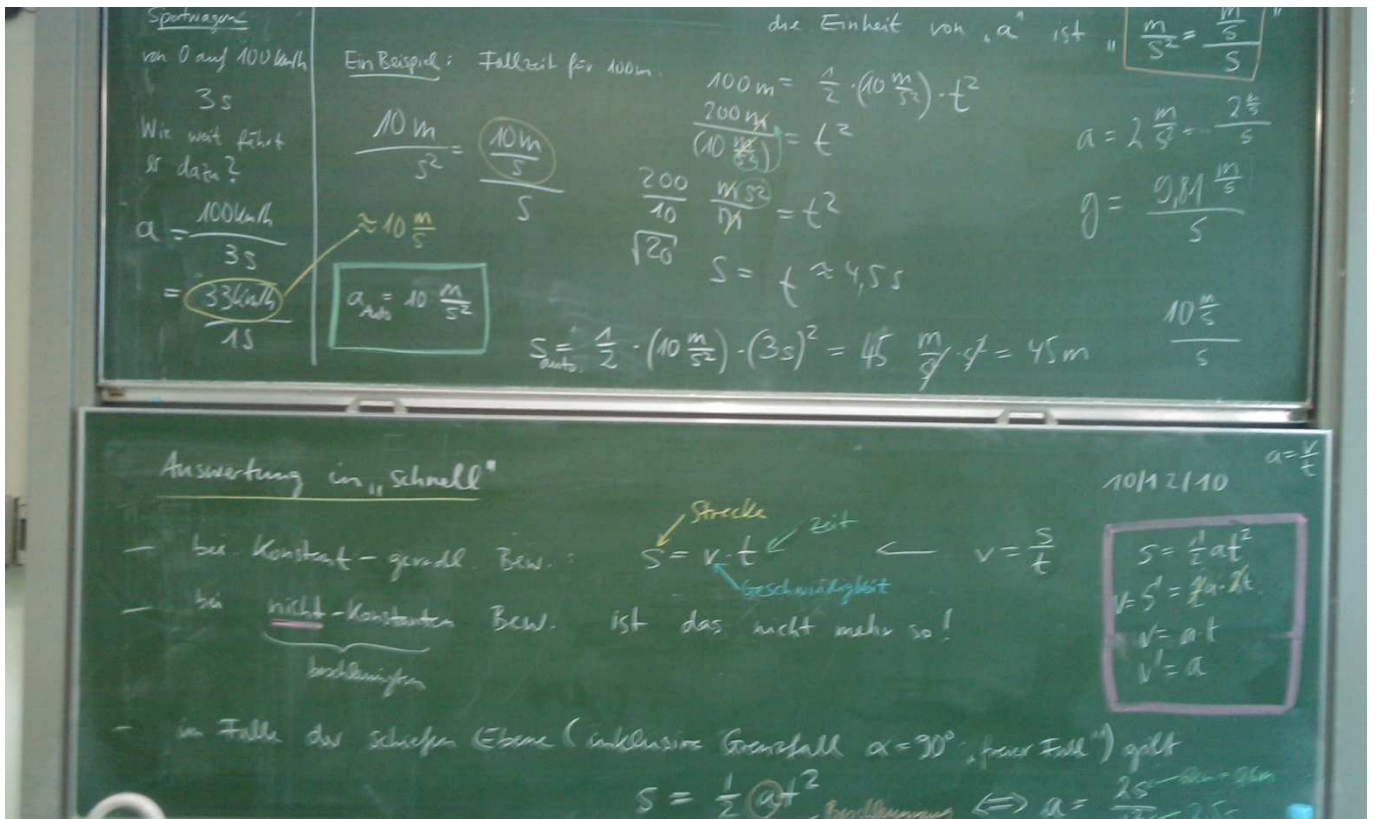 Sportwagen
von 0 auf 100 km/h
3s
Wie weit fährt
er dazu?
a = 100km/h / 3s
= 33km/h / 1s
Ein Beispiel: Fallzeit für 100m.
10m / s² = 10m/s / s
≈ 10 m/s
a_Auto = 10 m/s²
die Einheit von „a" ist „ m/s² = m/s / s "
100m = 1/2 · (10 m/s²) · t²
200m / (10 m/s²) = t²
200/10 m s²/m = t²
√20
S = t ≈ 4,5 s
S_auto = 1/2 · (10 m/s²) · (3s)² = 45 m/s² · s² = 45m
a = 2 m/s² = 2 m/s / s
g = 9,81 m/s / s
10 m/s / s
Auswertung in „schnell"
10/12/10
a = v/t
– bei Konstant-geradl. Bew.: s = v·t ← v = s/t
Strecke
Zeit
Geschwindigkeit
– bei nicht-Konstanten Bew. ist das nicht mehr so!
beschleunigten
s = 1/2 at²
v = s' = 1/2 a · 2t
v = a·t
v' = a
– im Falle der schiefen Ebene (inklusive Grenzfall α = 90° „freier Fall") gilt
s = 1/2 at² ⟺ a = 2s
Beschleunigung